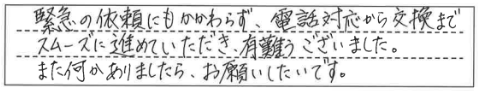 緊急の依頼にもかかわらず、電話対応から交換まで
スムーズに進めていただき、有難うございました。
また何かありましたら、お願いしたいです。